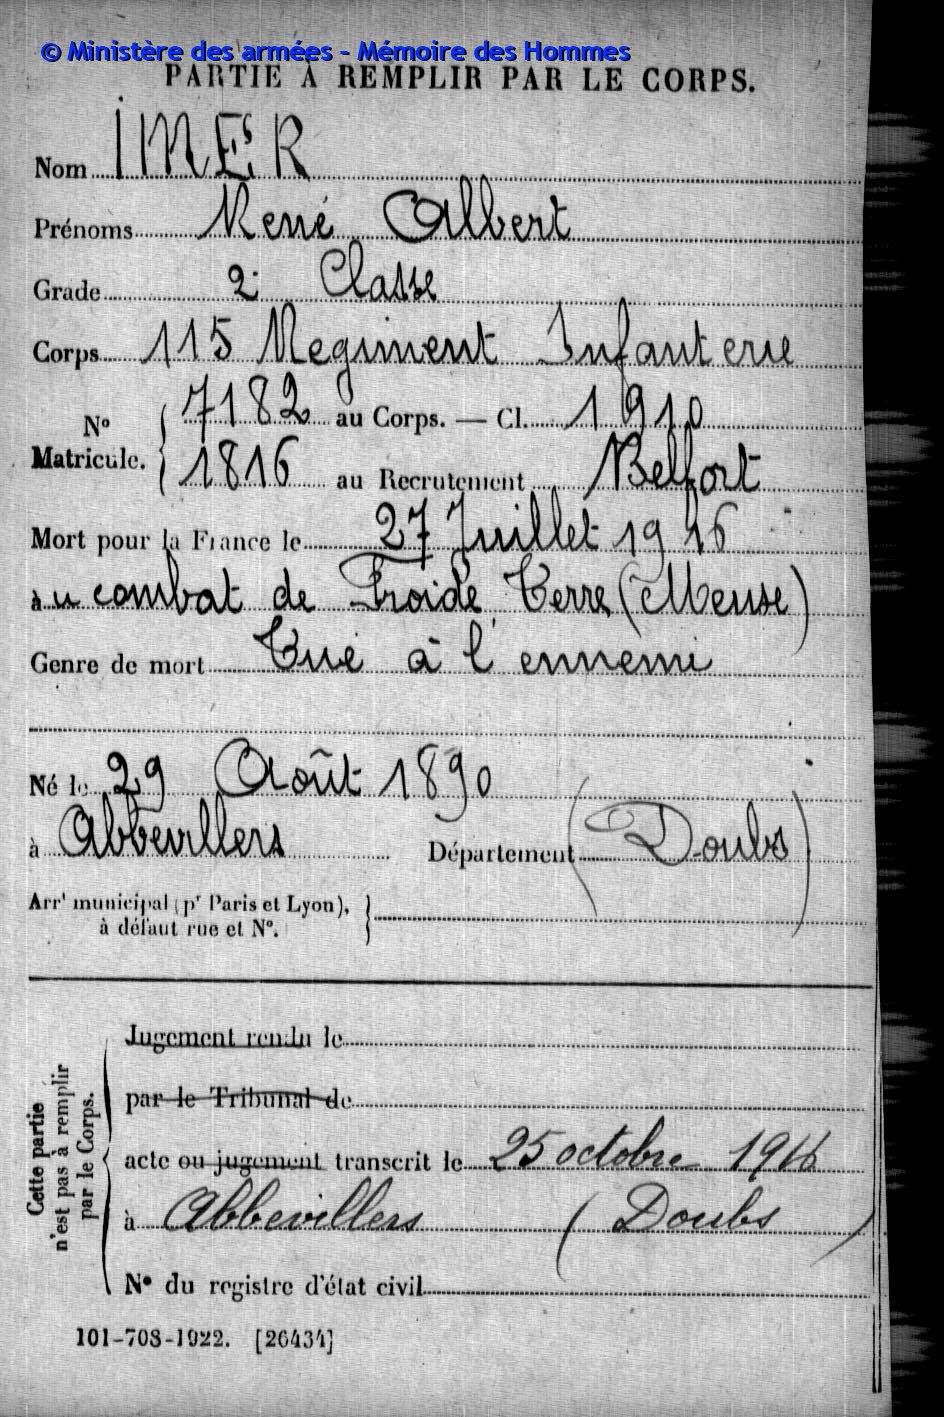 © Ministère des armées - Mémoire des Hommes
PARTIE À REMPLIR PAR LE CORPS.
Nom IMER
Prénoms René Albert
Grade 2e Classe
Corps 115 Régiment Infanterie
N° Matricule. { 7182 au Corps. — Cl. 1910
1816 au Recrutement Belfort
Mort pour la France le 27 Juillet 1916
au combat de Froide Terre (Meuse)
Genre de mort Tué à l'ennemi
Né le 29 Août 1890
à Abbévillers Département (Doubs)
Arrt municipal (pr Paris et Lyon),
à défaut rue et N°.
Cette partie n'est pas à remplir par le Corps.
Jugement rendu le
par le Tribunal de
acte ou jugement transcrit le 25 octobre 1916
à Abbevillers (Doubs)
N° du registre d'état civil
101-708-1922. [26434]